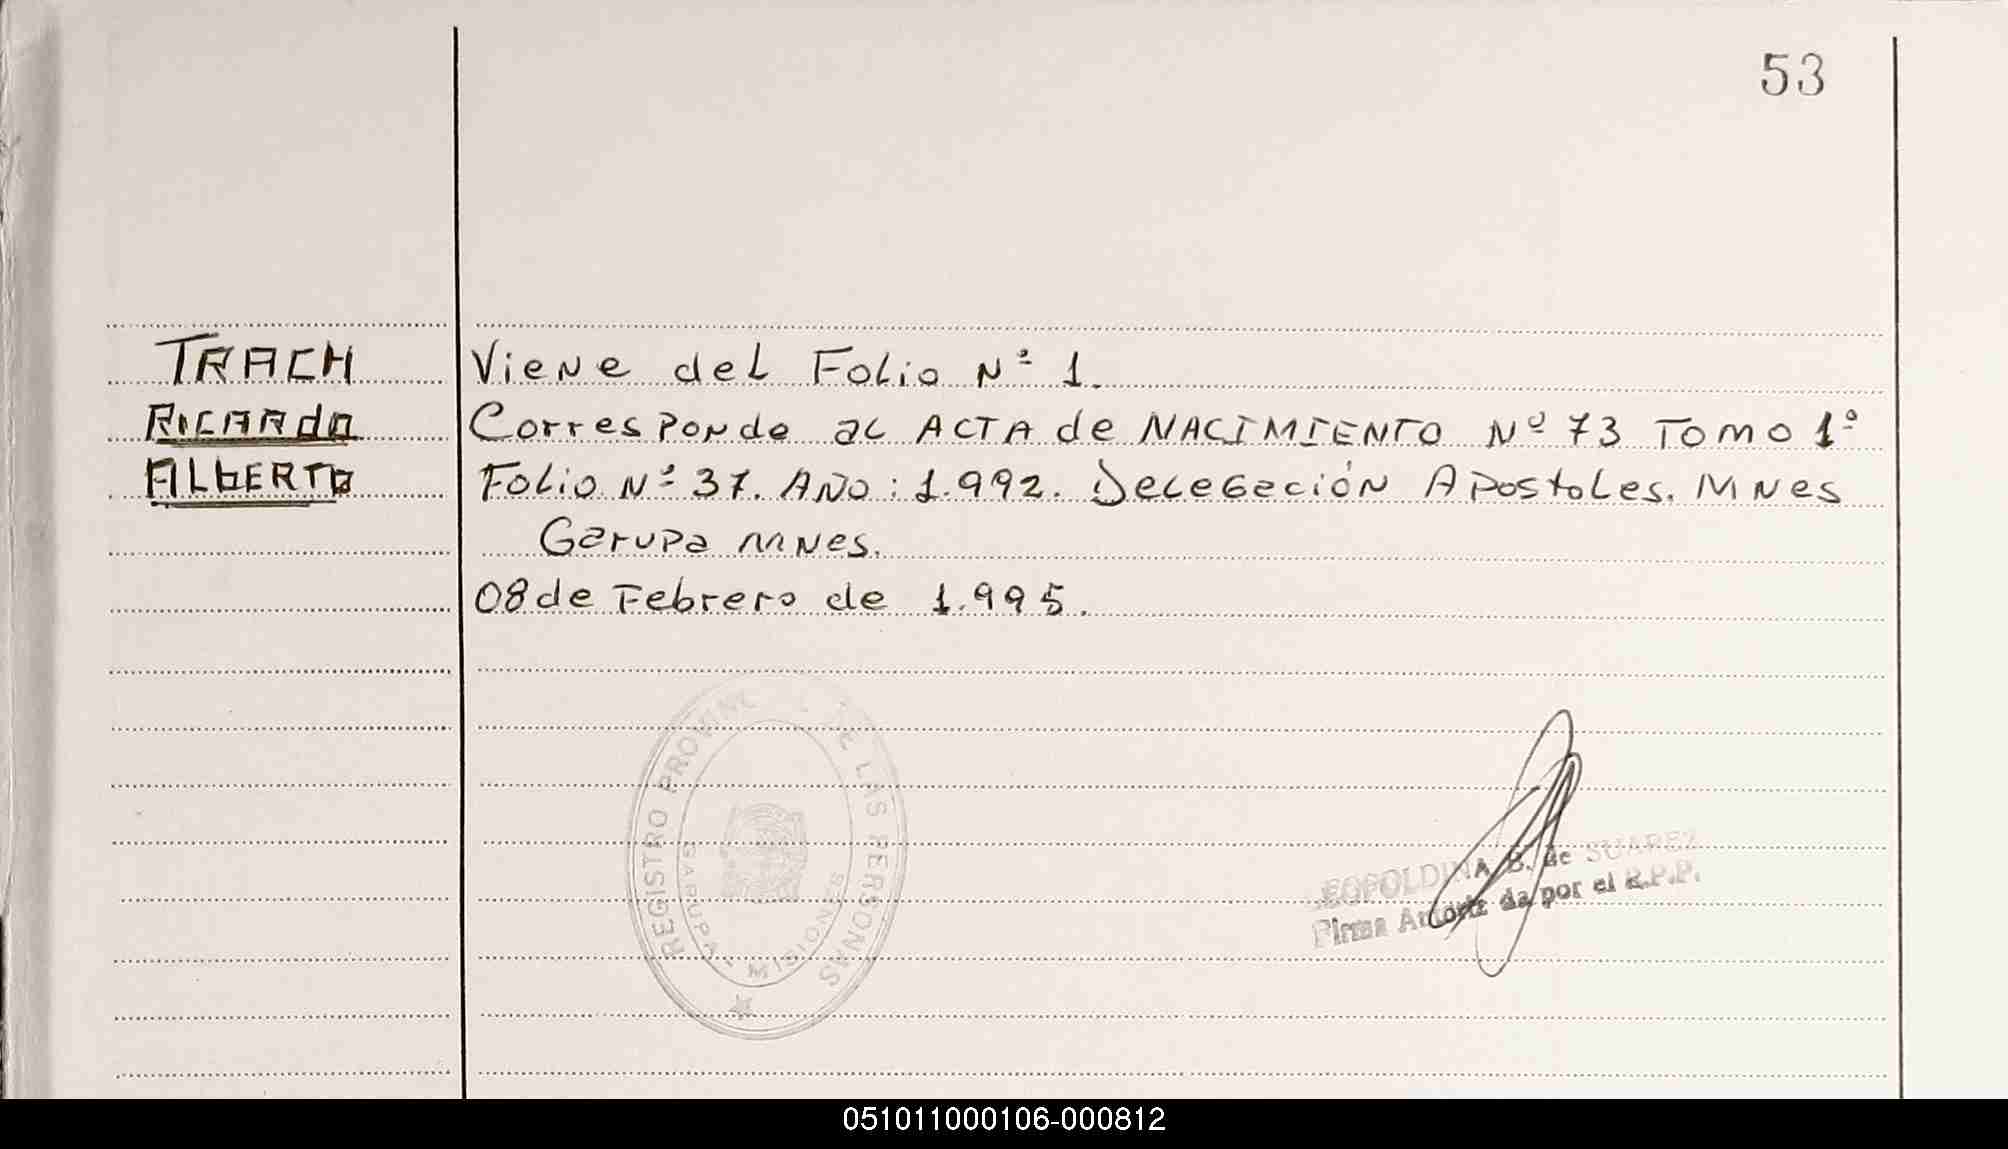 53
TRACH
RICARDO
ALBERTO
Viene del Folio Nº 1.
Corresponde al ACTA de NACIMIENTO Nº 73 Tomo 1º
Folio Nº 37. Año: 1.992. Delegación Apostoles. Mnes
Garupa Mnes.
08 de Febrero de 1.995.
REGISTRO PROVINC DE LAS PERSONAS
GARUPA MISIONES
LEOPOLDINA B. de SUAREZ
Firma Autoriz da por el R.P.P.
051011000106-000812